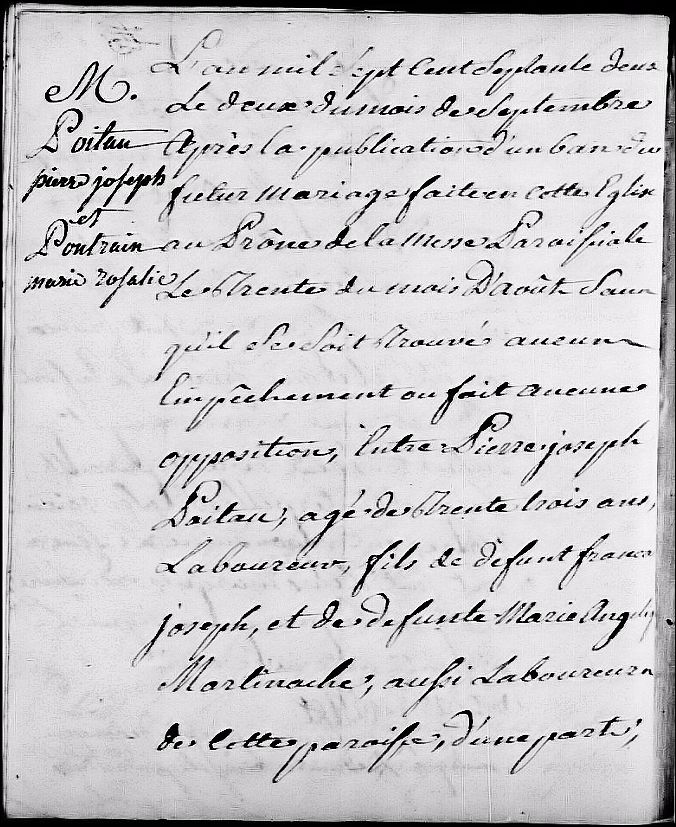 M.
Poitau
pierre joseph
et
Poutrain
marie rosalie
L'an mil Sept Cent Septante deux
Le deux du mois de Septembre
Après la publication d'un ban du
futur mariage faite en cette Eglise
au Prône de la Messe Paroissiale
Le Trente du mois D'août Sans
qu'il Se Soit Trouvé aucun
Empêchement ou fait aucune
opposition, Entre Pierre joseph
Poitau, agé de Trente trois ans,
Laboureur, fils de défunt franco
joseph, et de defunte Marie Angeliq
Martinache, aussi Laboureurs
de Cette paroisse, d'une part,